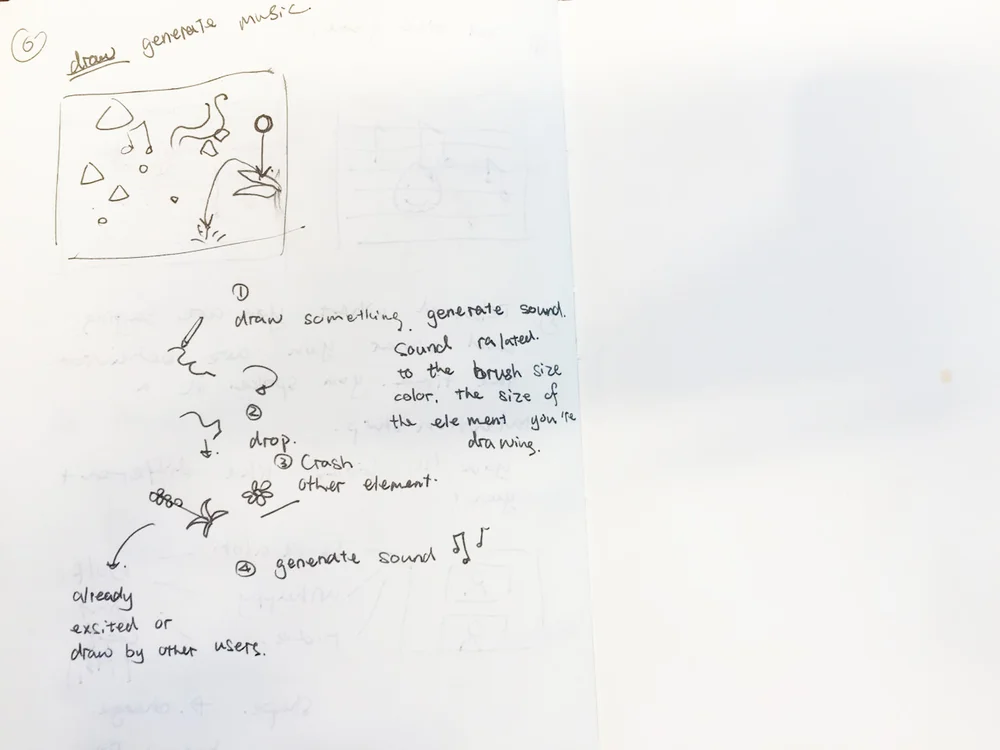 ⑥ draw generate music.
①
draw something, generate sound.
sound ralated.
to the brush size
color. the size of
the element you're
drawing.
②
drop.
③ Crash
other element.
④ generate sound
already
exsited or
draw by other users.